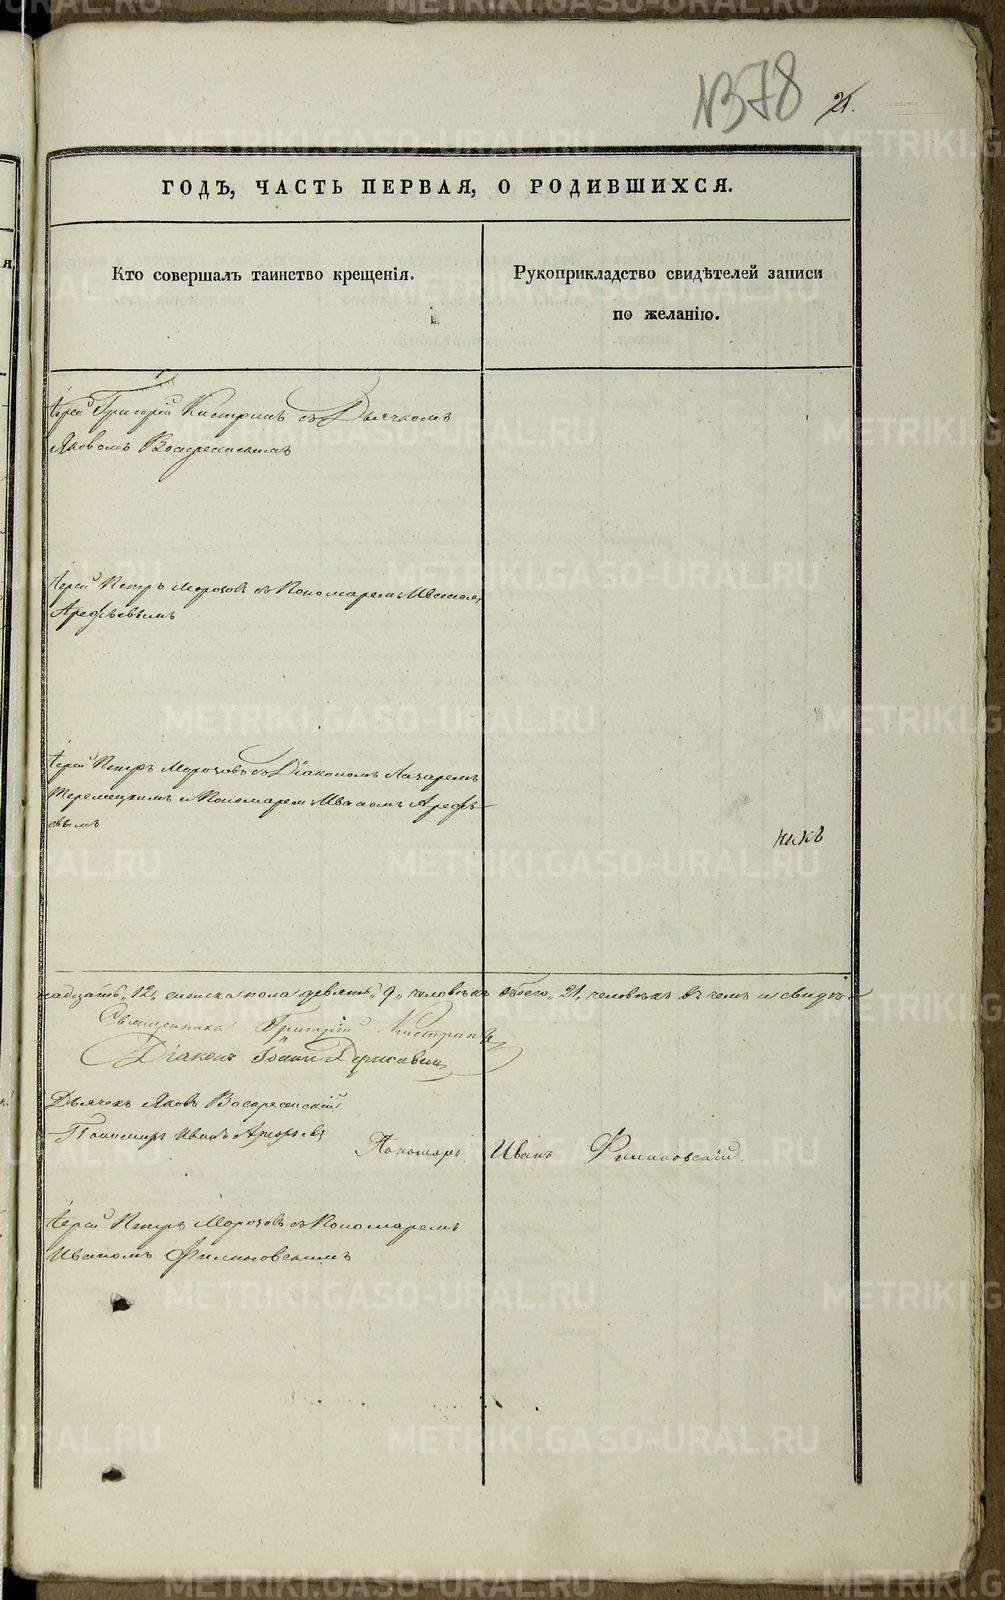 №378 21.
ГОДЪ, ЧАСТЬ ПЕРВАЯ, О РОДИВШИХСЯ.
Кто совершалъ таинство крещенія.
Рукоприкладство свидѣтелей записи
по желанію.
Іерей Григорій Кистринъ съ Дьячкомъ
Яковомъ Воскресенскимъ
Іерей Петръ Морозовъ съ Пономаремъ Иваномъ
Арефьевымъ
Іерей Петръ Морозовъ съ Діакономъ Лазаремъ
и Пономаремъ Иваномъ Арефье-
вымъ
надцать „12„ женска пола девять „9„ человѣкъ обоего „21„ человѣкъ въ чемъ и свидѣ-
Священникъ Григорій Кистринъ
Діаконъ Іоаннъ
Дьячекъ Яковъ Воскресенскій
Пономарь Иванъ Арефьевъ
Пономарь Иванъ Филиновскій
Іерей Петръ Морозовъ съ Пономаремъ
Иваномъ Филиновскимъ
METRIKI.GASO-URAL.RU